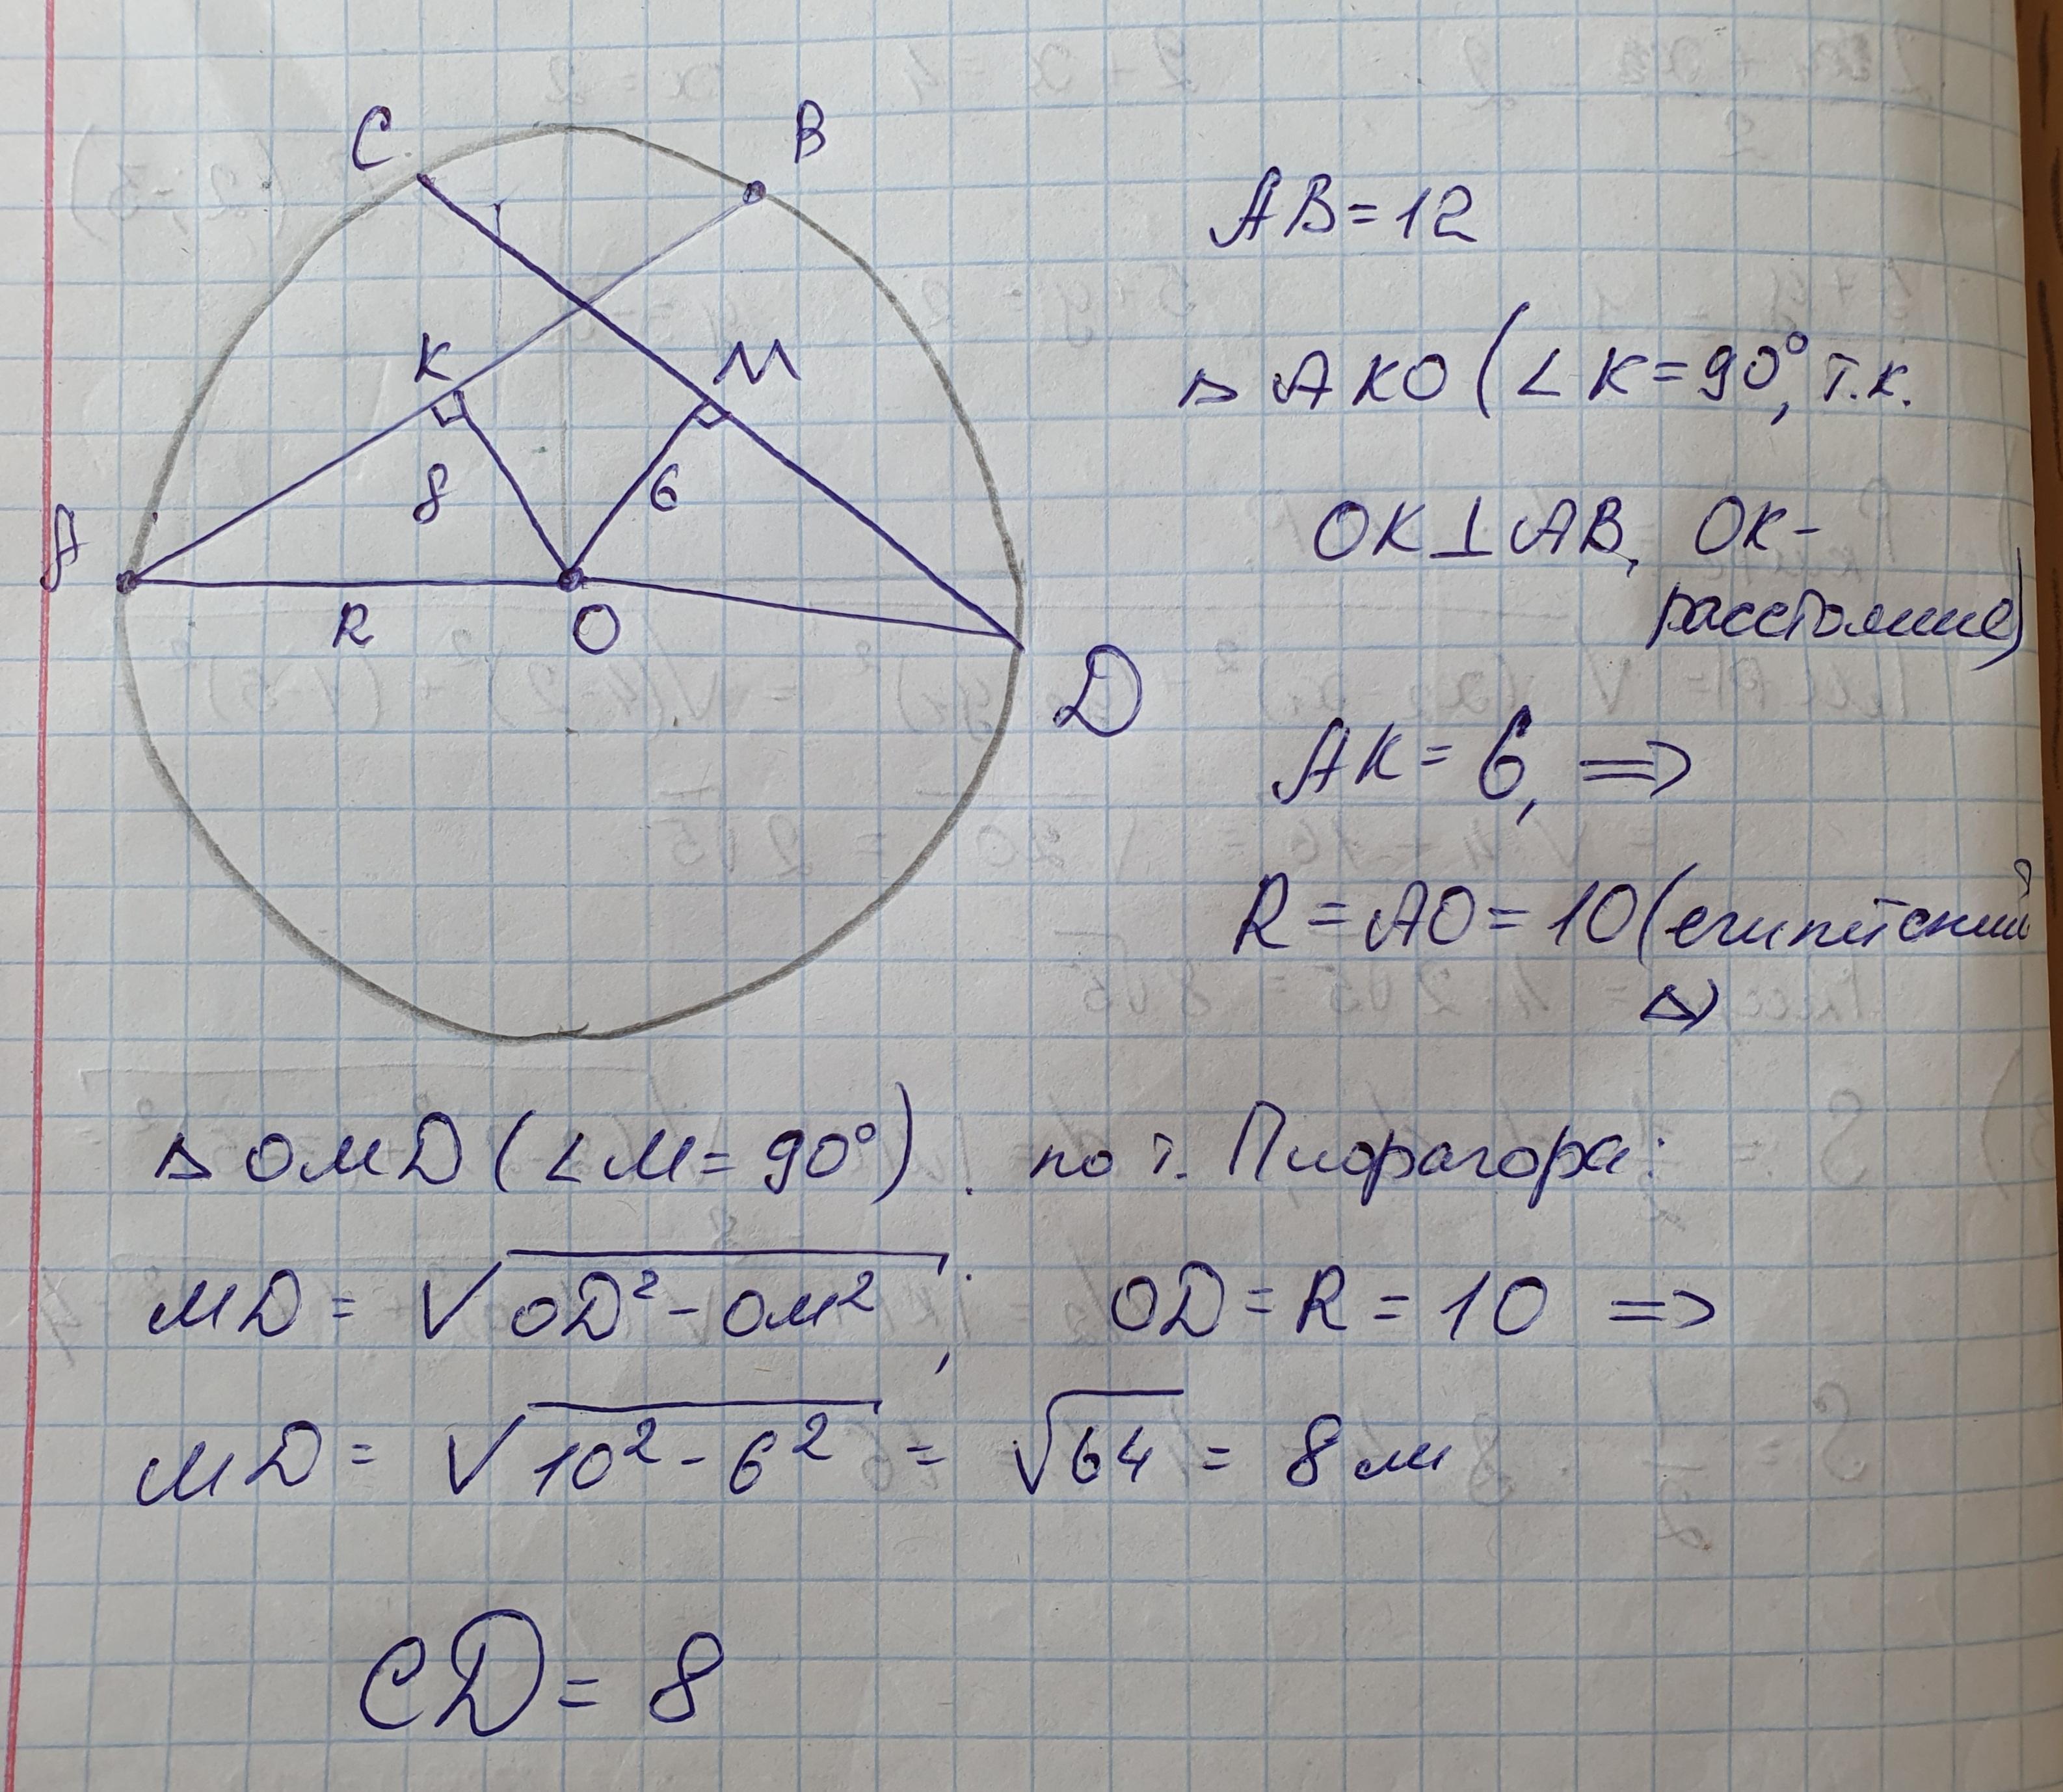 C
B
K
M
8
6
A
R
O
D
AB=12
△ AKO (∠K=90°, т.к.
OK⊥AB, OK-
расстояние)
AK=6, ⇒
R=AO=10 (египетский
△)
△ OMD (∠M=90°). по т. Пифагора:
MD = √OD²-OM²; OD=R=10 ⇒
MD = √10²-6² = √64 = 8 м
CD=8